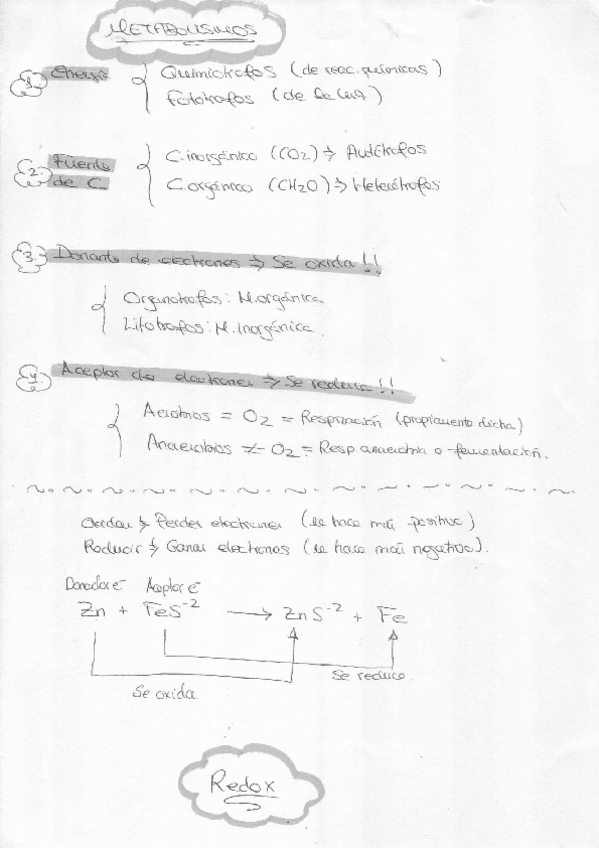 METABOLISMOS
1. Energía { Quimiótrofos (de reac. químicas)
Fotótrofos (de la luz)
2. Fuente de C. { C. inorgánico (CO2) → Autótrofos
C. orgánico (CH2O) → Heterótrofos
3. Donante de electrones → Se oxida!!
{ Organotrofos: M. orgánica
Litotrofos: M. inorgánica.
4. Aceptor de electrones → Se reduce!!
{ Aerobios = O2 = Respiración (propiamente dicha)
Anaerobios ≠ O2 = Resp. anaerobia o fermentación.
Oxidar → Perder electrones (se hace más positivo)
Reducir → Ganar electrones (se hace más negativo).
Donador e- Aceptor e-
Zn + FeS-2 → ZnS-2 + Fe
Se reduce
Se oxida
Redox